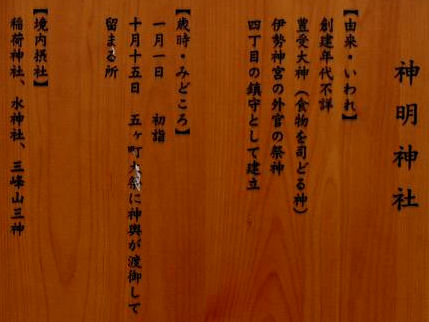 神明神社
【由来・いわれ】
創建年代不詳
豊受大神（食物を司どる神）
伊勢神宮の外宮の祭神
四丁目の鎮守として建立
【歳時・みどころ】
一月一日 初詣
十月十五日 五ヶ町大祭に神輿が渡御して
留まる所
【境内摂社】
稲荷神社、水神社、三峰山三神